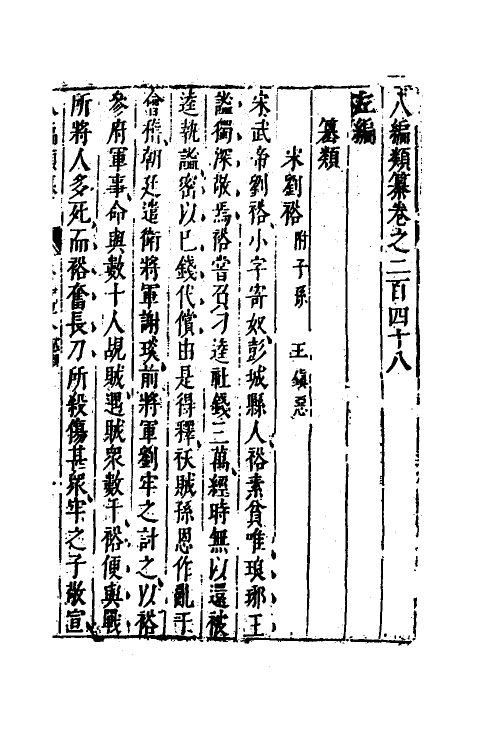 八編類纂卷之二百四十八
左編
篡類
宋劉裕 附子孫 王鎮惡
宋武帝劉裕小字寄奴彭城縣人裕素貧唯琅琊王
謐獨深敬焉裕嘗召刁逵社錢三萬經時無以還被
逵執謐密以已錢代償由是得釋妖賊孫恩作亂于
會稽朝廷遣衛將軍謝琰前將軍劉牢之討之以裕
參府軍事命與數十人覘賊遇賊衆數千裕便與戰
所將人多死而裕奮長刀所殺傷甚衆牢之子敬宣